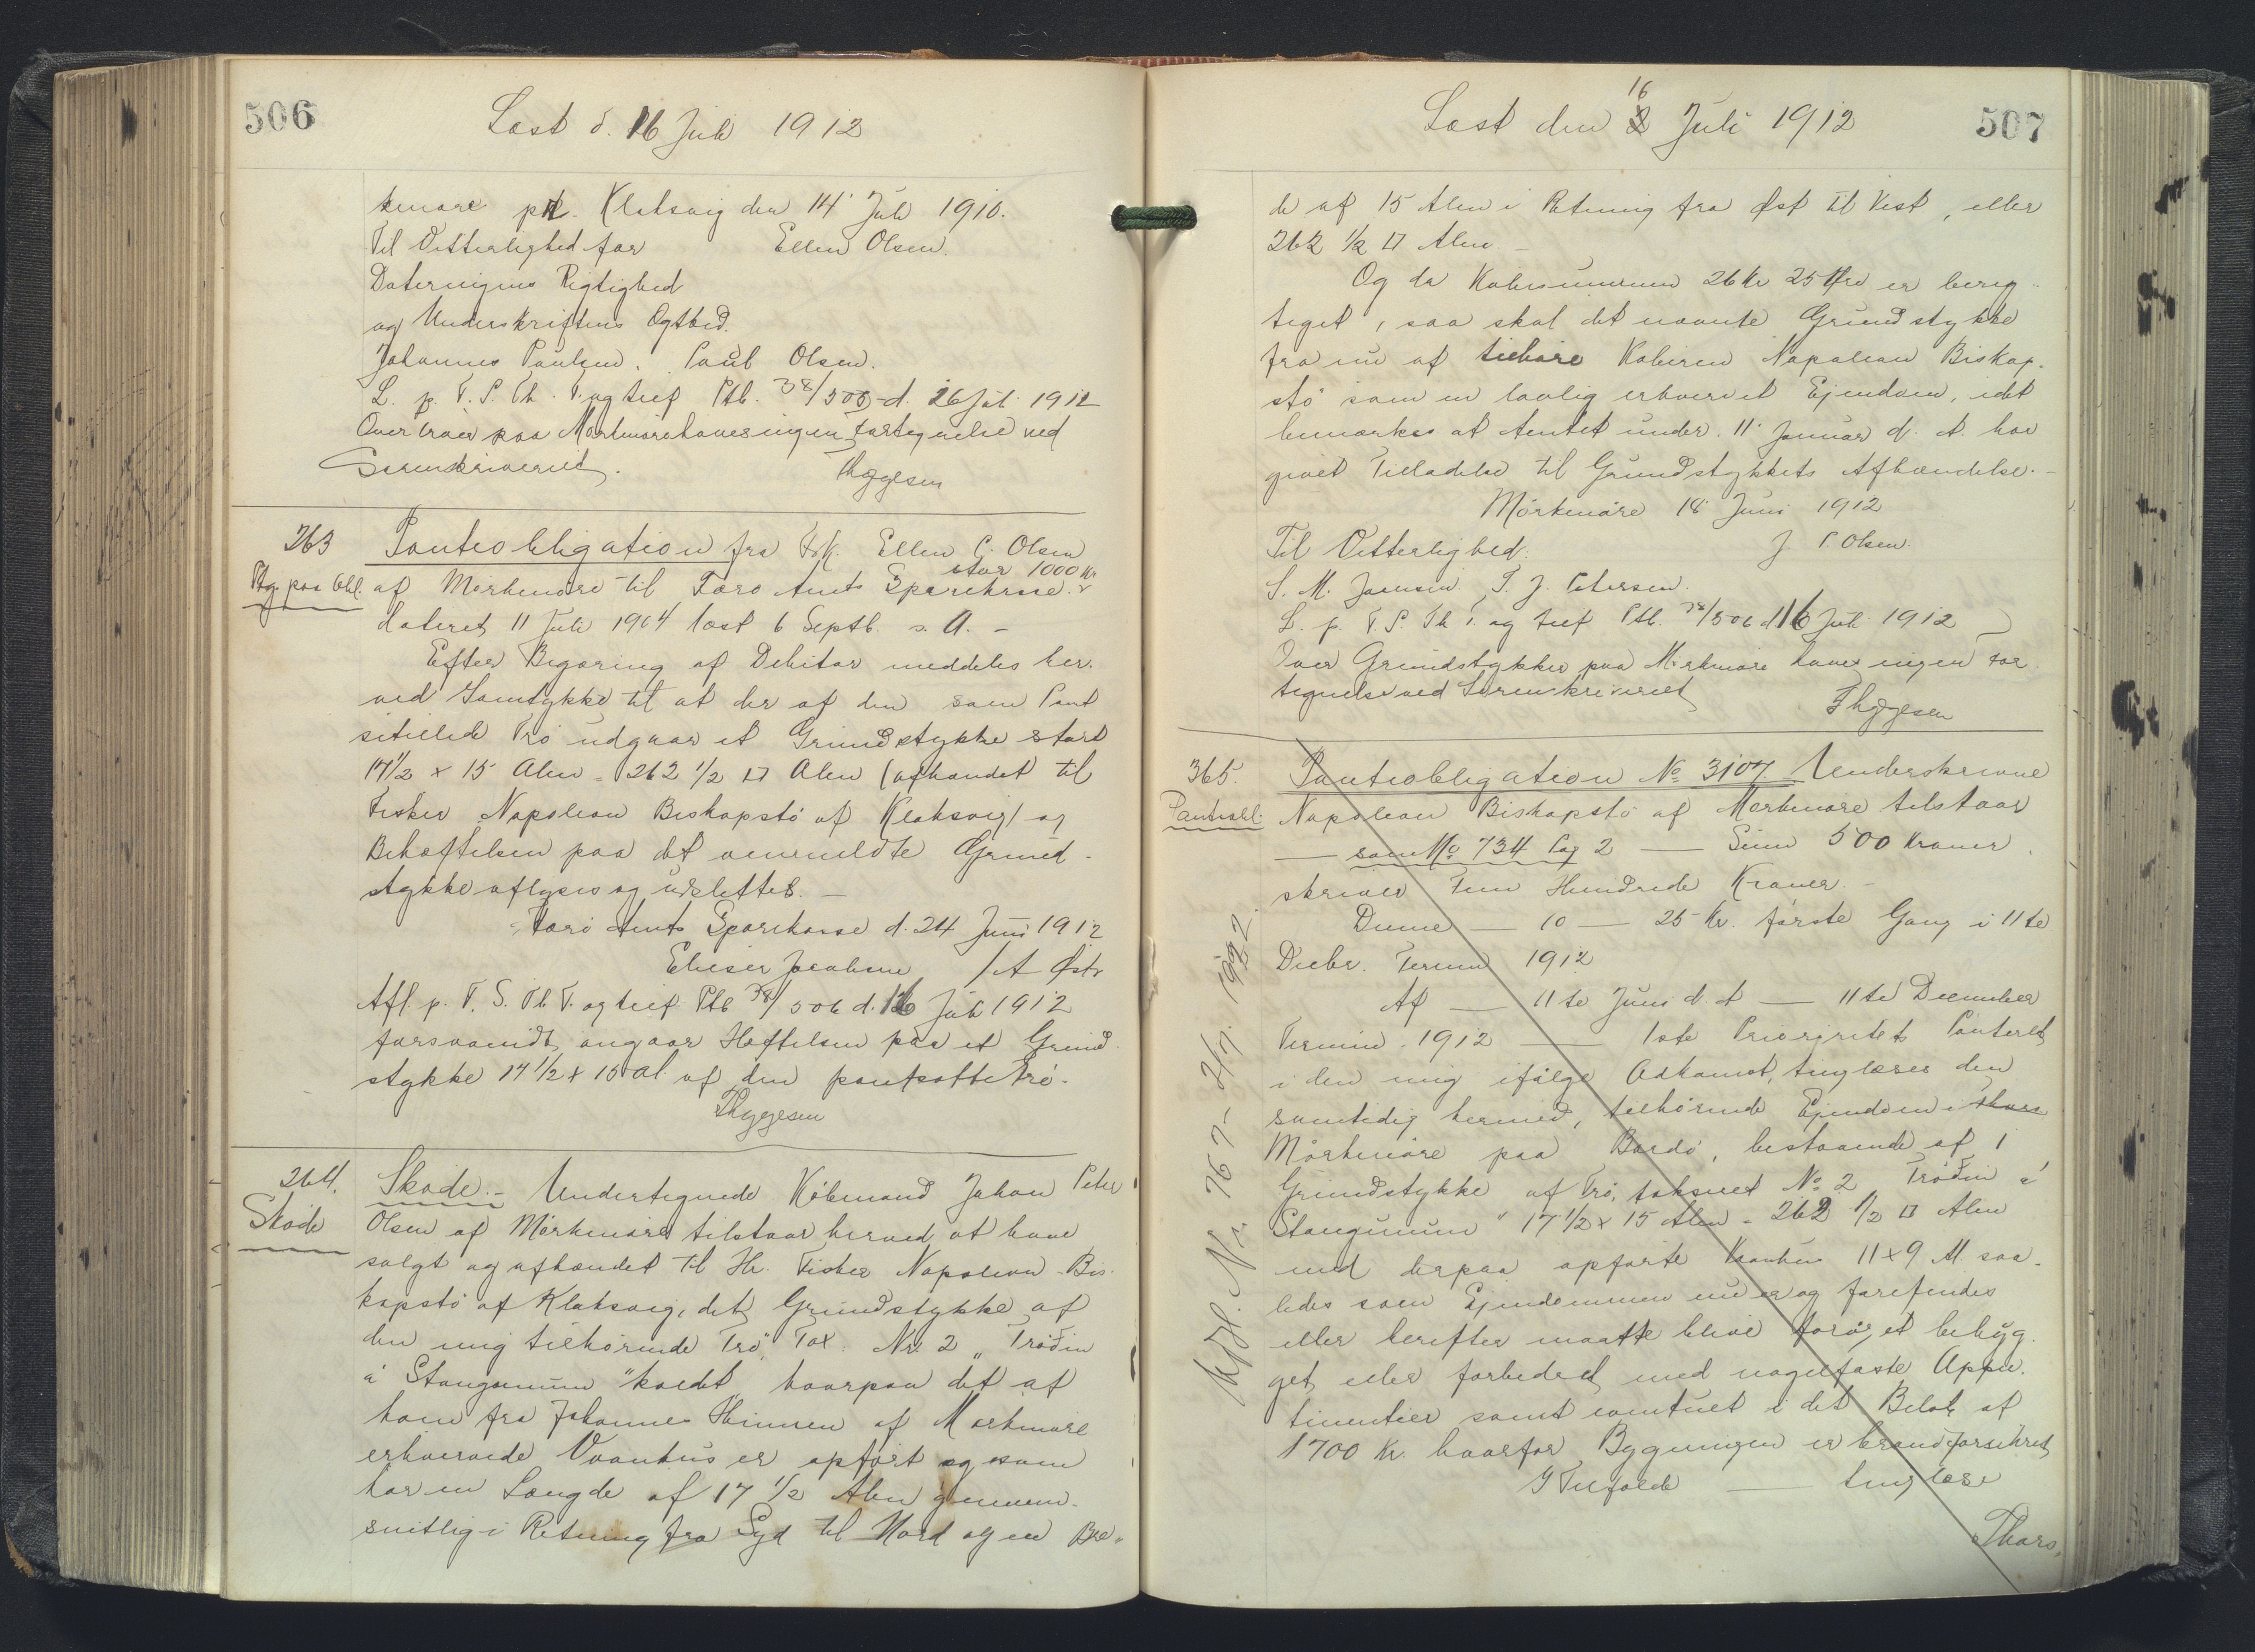 506
Læst d. 16 Juli 1912
kenøre pr. Klaksvig den 14 Juli 1910.
Til Vitterlighed for Ellen Olsen.
Dateringens Rigtighed
og Underskriftens Ægthed.
Johannes Poulsen. Poul Olsen.
L. p. F. S. Th. T. og tilf Ptb. 38/506 d. 16 Juli 1912
Over Trøer paa Mørkenøre haves ingen Fortegnelse ved
Sorenskriveriet. Thygesen
263 Panteobligation fra Frk. Ellen C. Olsen
stor 1000 Kr
Ptg. paa Obl. af Mørkenøre til Færø Amts Sparekasse
dateret 11 Juli 1904 læst 6 Septb. s. A. -
Efter Begæring af Debitor meddeles her-
ved Samtykke til at der af den som Pant
stillede Trø udgaar et Grundstykke stort
17½ x 15 Alen = 262 ½ □ Alen (afhændet til
Fisker Napoleon Biskopstø af Klaksvig) og
Behæftelsen paa det ommeldte Grund-
stykke aflyses og udslettes. -
Færø Amts Sparekasse d. 24 Juni 1912
Elieser Jacobsen / A Østr
Afl. p. F. S. Th T. og tilf Ptb 38/506 d. 16 Juli 1912
forsaavidt angaar Hæftelsen paa et Grund
stykke 17 ½ x 15 Al. af den pantsatte Trø.
Thygesen
264. Skøde. - Undertegnede Købmand Johan Peter
Skøde Olsen af Mørkenøre tilstaar herved at have
solgt og afhændet til Hr. Fisker Napoleon Bis-
kopstø af Klaksvig, det Grundstykke af
den mig tilhørende Trø, Tax. Nr. 2 „Trøðin
á Stongunum" kaldt, hvorpaa det af
ham fra Johannes Hinnsen af Mørkenøre
erhvervede Vaanhus er opført og som
har en Længde af 17 ½ Alen gennem-
snitlig i Retning fra Syd til Nord og en Bre-
Læst den 16 Juli 1912
507
de af 15 Alen i Retning fra Øst til Vest, eller
262 ½ □ Alen -
Og da Købesummen 26 Kr 25 Øre er berig-
tiget, saa skal det nævnte Grundstykke
fra nu af tilhøre Køberen Napoleon Biskop-
stø som en lovlig erhvervet Ejendom, idet
bemærkes at Amtet under 11 Januar d. A. har
givet Tilladelse til Grundstykkets Afhændelse. -
Mørkenøre 18 Juni 1912
Til Vitterlighed. J P. Olsen.
S. M. Joensen. T. J. Petersen.
L. p. F. S. Th T. og tilf Ptb. 38/506 d 16 Juli 1912
Over Grundstykker paa Mørkenøre haves ingen For
tegnelse ved Sorenskriveriet
Thygesen
365. Panteobligation No 3107. Underskrevne
Panteobl. Napoleon Biskopstø af Mørkenøre tilstaar
— som No 734 Pag 2 — Sum 500 Kroner
skriver Fem Hundrede Kroner. -
Denne — 10 — 25 Kr. første Gang i 11te
Decbr. Termin 1912
Af — 11te Juni d. A — 11te December
Termin 1912 — 1ste Prioritets Panteret
i den mig ifølge Adkomst, tinglæses den
samtidig hermed, tilhørende Ejendom i Thors
Mørkenøre paa Bordø, bestaaende af 1
Grundstykke af Trø, takseret No 2 „Trøðin á
Stongunum" 17 ½ x 15 Alen = 262 ½ □ Alen
med derpaa opførte Vaanhus 11 x 9 Al. saa-
ledes som Ejendommen nu er og forefindes
eller herefter maatte blive forøget bebyg-
get eller forbedret med nagelfaste Appe.
tinentier samt eventuelt i det Beløb af
1700 Kr. hvorfor Bygningen er brandforsikret
I Tilfælde — tinglæse
Thors.